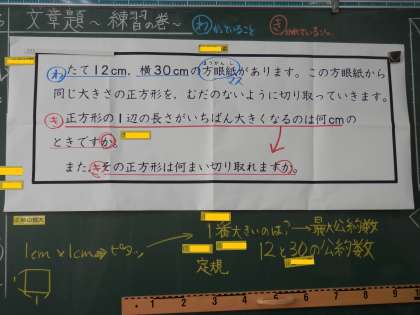 文章題～練習の巻～
わ かっていること
き かれていること
わ たて12cm、横30cmの方眼紙があります。この方眼紙から
同じ大きさの正方形を、むだのないように切り取っていきます。
き 正方形の1辺の長さがいちばん大きくなるのは何cmの
ときですか。
また、き その正方形は何まい切り取れますか。
1番大きいのは?→最大公約数
1cm×1cm⇒ピタッ
12と30の公約数
定規
1 2 3 4 5 6 7 8 9